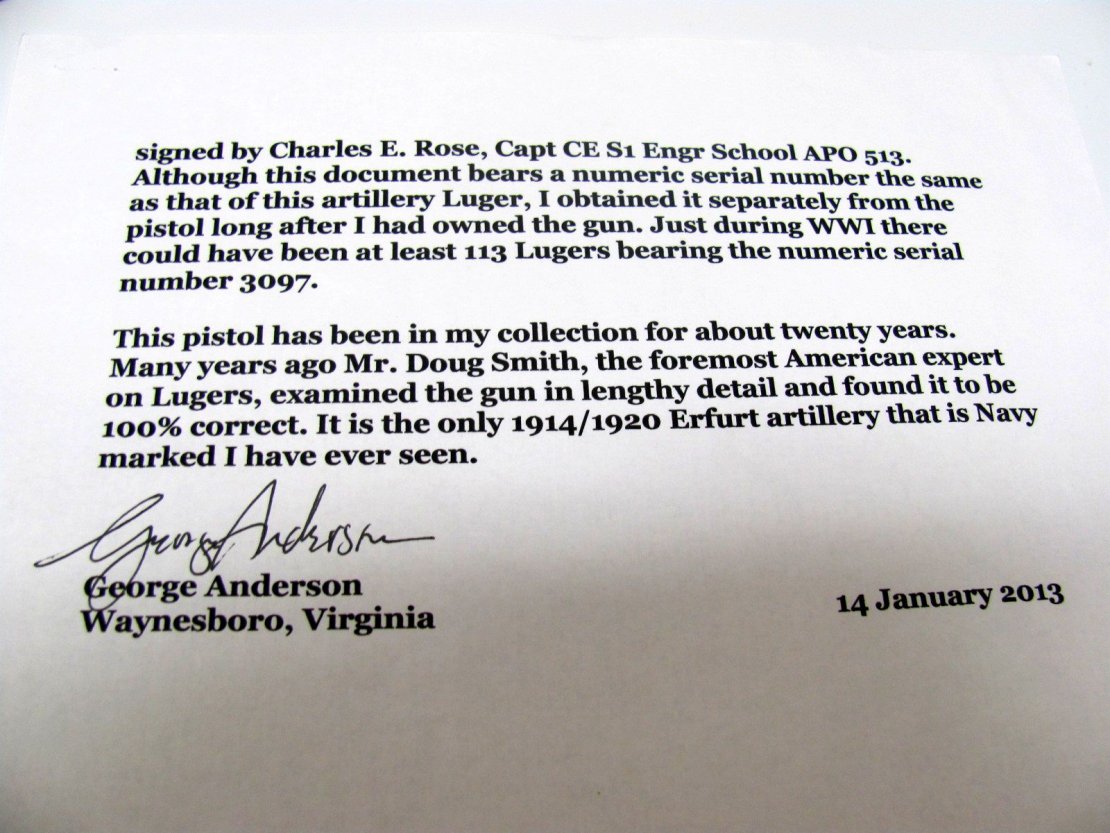 signed by Charles E. Rose, Capt CE S1 Engr School APO 513.
Although this document bears a numeric serial number the same
as that of this artillery Luger, I obtained it separately from the
pistol long after I had owned the gun. Just during WWI there
could have been at least 113 Lugers bearing the numeric serial
number 3097.
This pistol has been in my collection for about twenty years.
Many years ago Mr. Doug Smith, the foremost American expert
on Lugers, examined the gun in lengthy detail and found it to be
100% correct. It is the only 1914/1920 Erfurt artillery that is Navy
marked I have ever seen.
George Anderson
George Anderson
Waynesboro, Virginia
14 January 2013